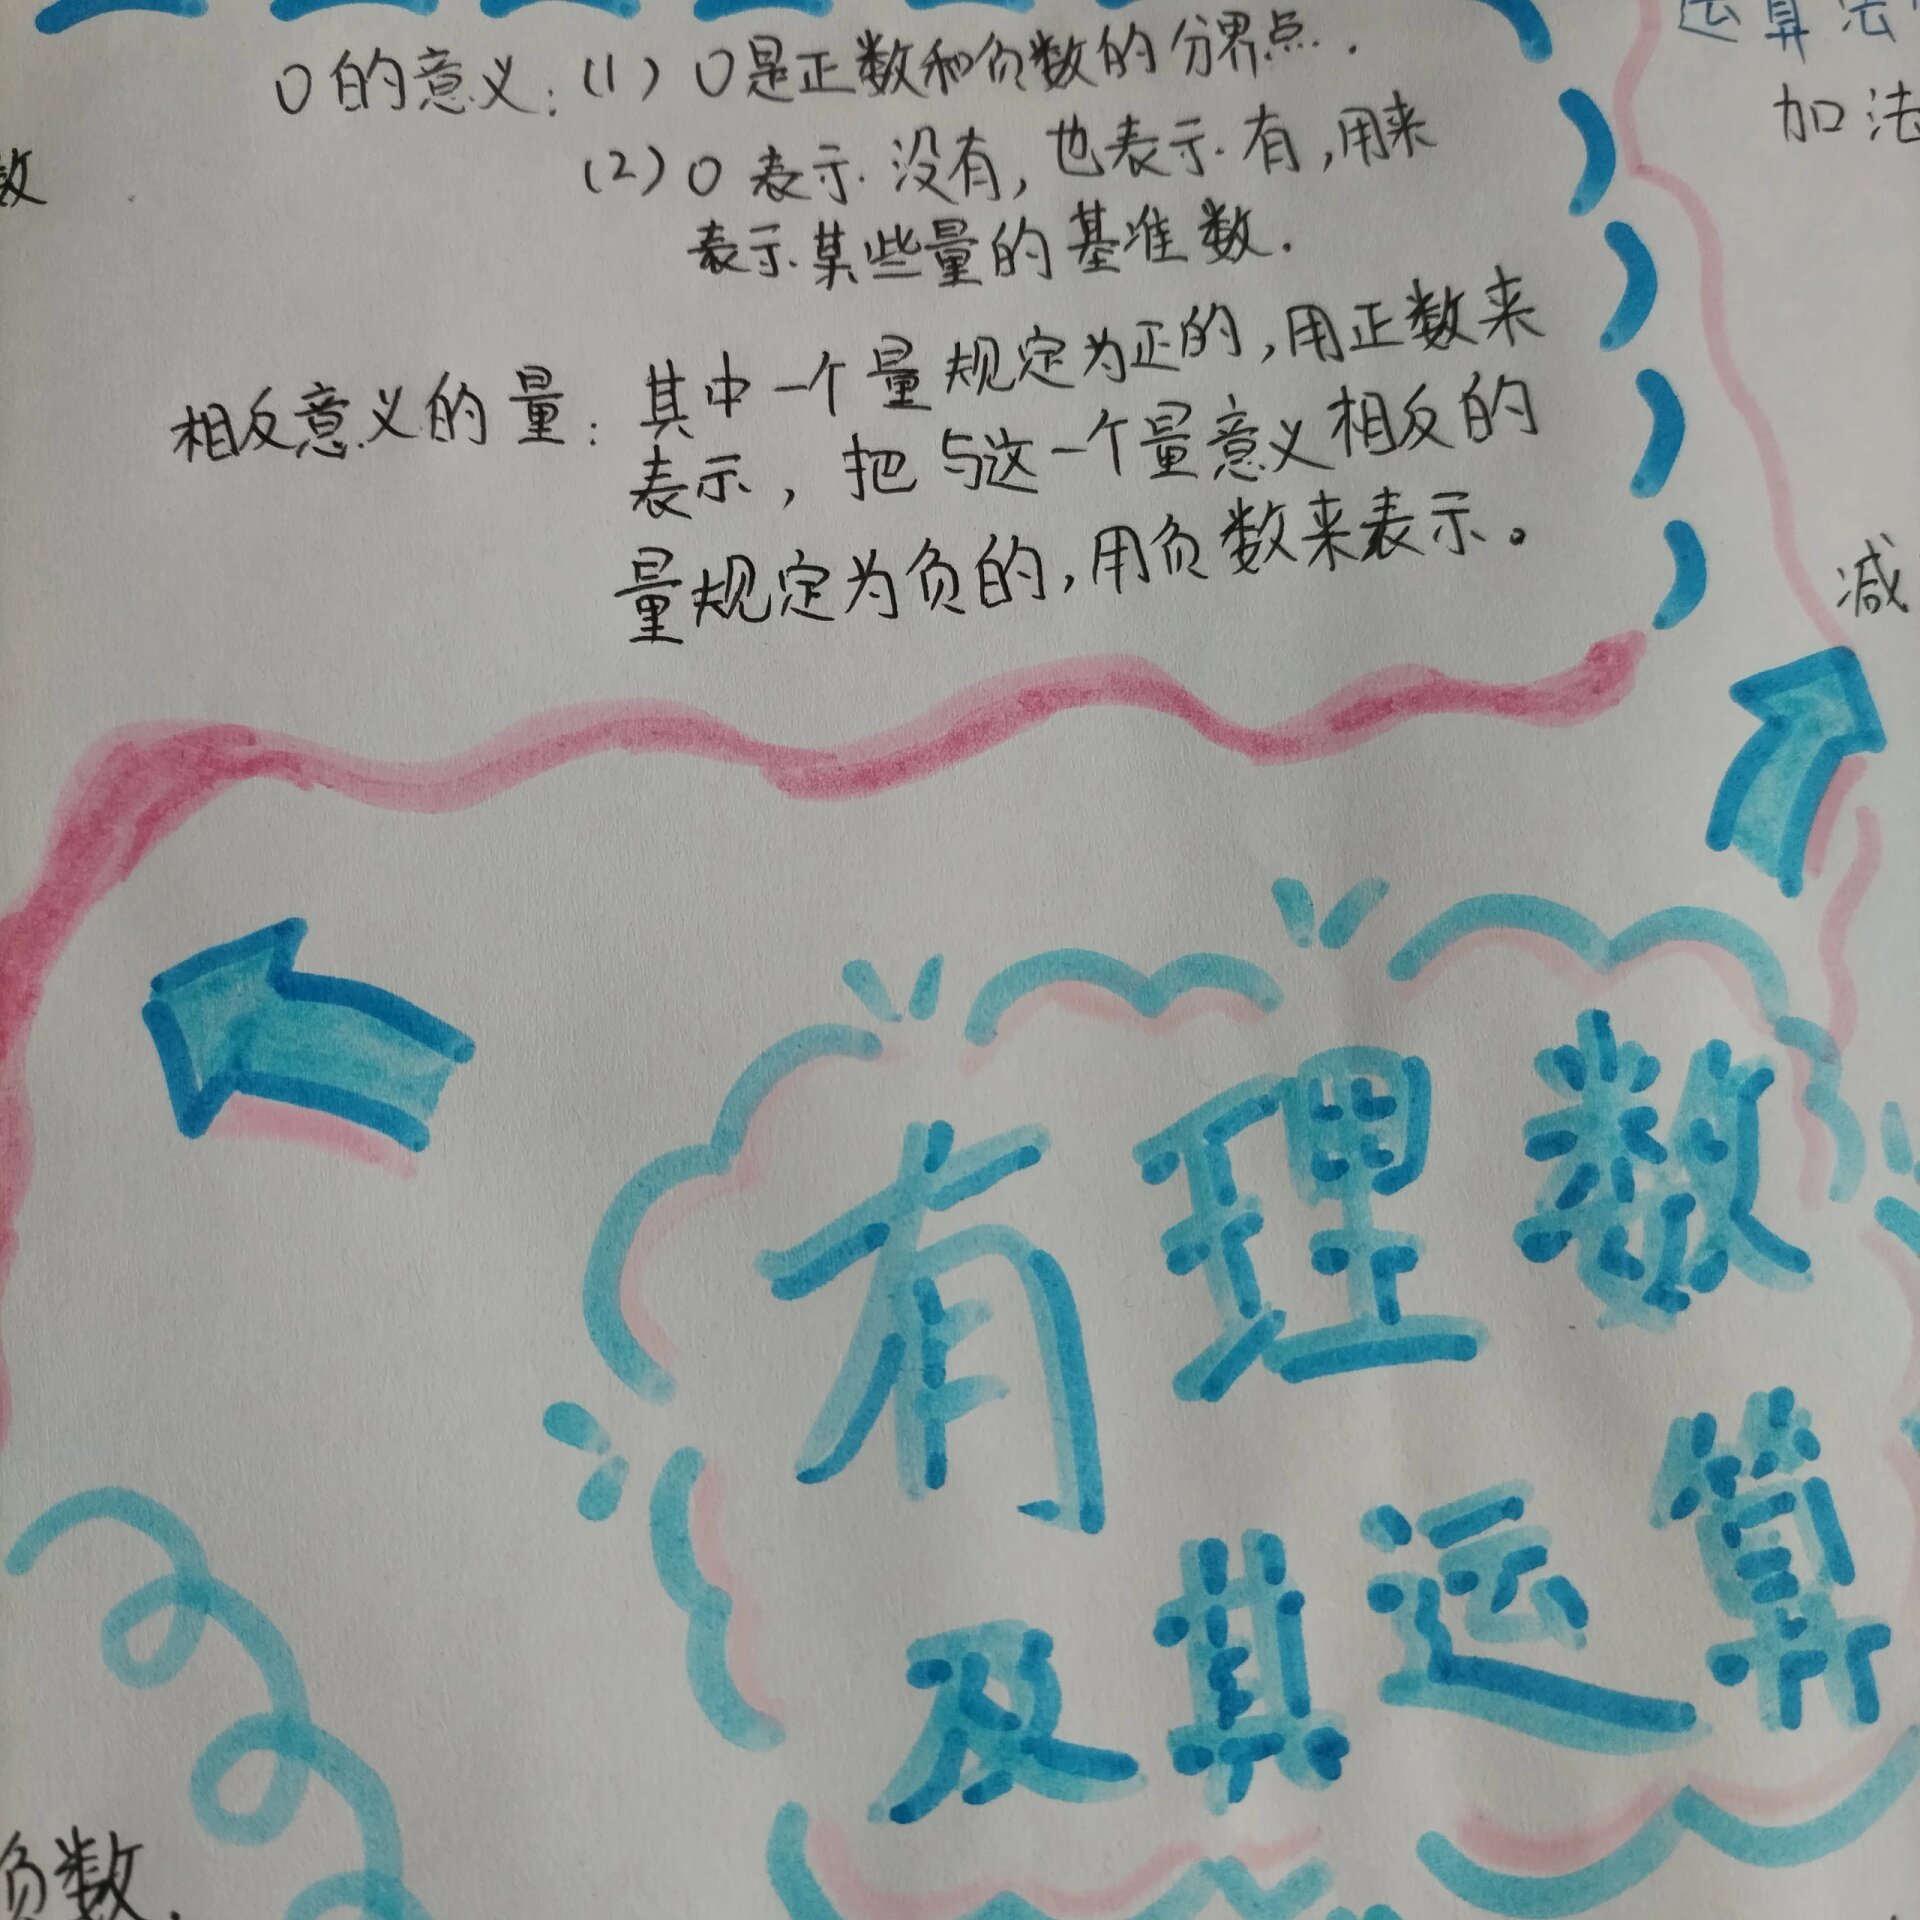 运算法
0的意义:(1)0是正数和负数的分界点.
加法
数
(2)0表示.没有,也表示.有,用来
表示.某些量的基准数.
相反意义的量:其中一个量规定为正的,用正数来
表示,把与这一个量意义相反的
量规定为负的,用负数来表示。
减
有理数
及其运算
负数.